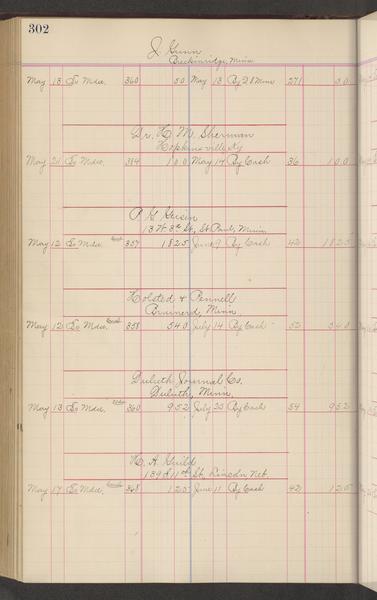 302
J. Gunn
Breckinridge, Minn
May 13 To Mdse. 360 50 May 13 By 21 Mdse 271 50
Dr. H. M. Sherman
Hopkinsville Ky
May 21 To Mdse. 384 100 May 14 By Cash 36 100
P G Geisen
13 W 3rd St, St Paul, Minn.
May 12 To Mdse. 357 1825 June 9 By Cash 42 1825
Holsted & Pennell
Brainerd, Minn.
May 12 To Mdse. 358 540 July 14 By Cash 52 540
Duluth Journal Co.
Duluth, Minn.
May 13 To Mdse. 360 952 July 25 By Cash 54 952
H. A. Guild
139 S 11th St, Lincoln Neb.
May 17 To Mdse. 368 125 June 11 By Cash 42 125